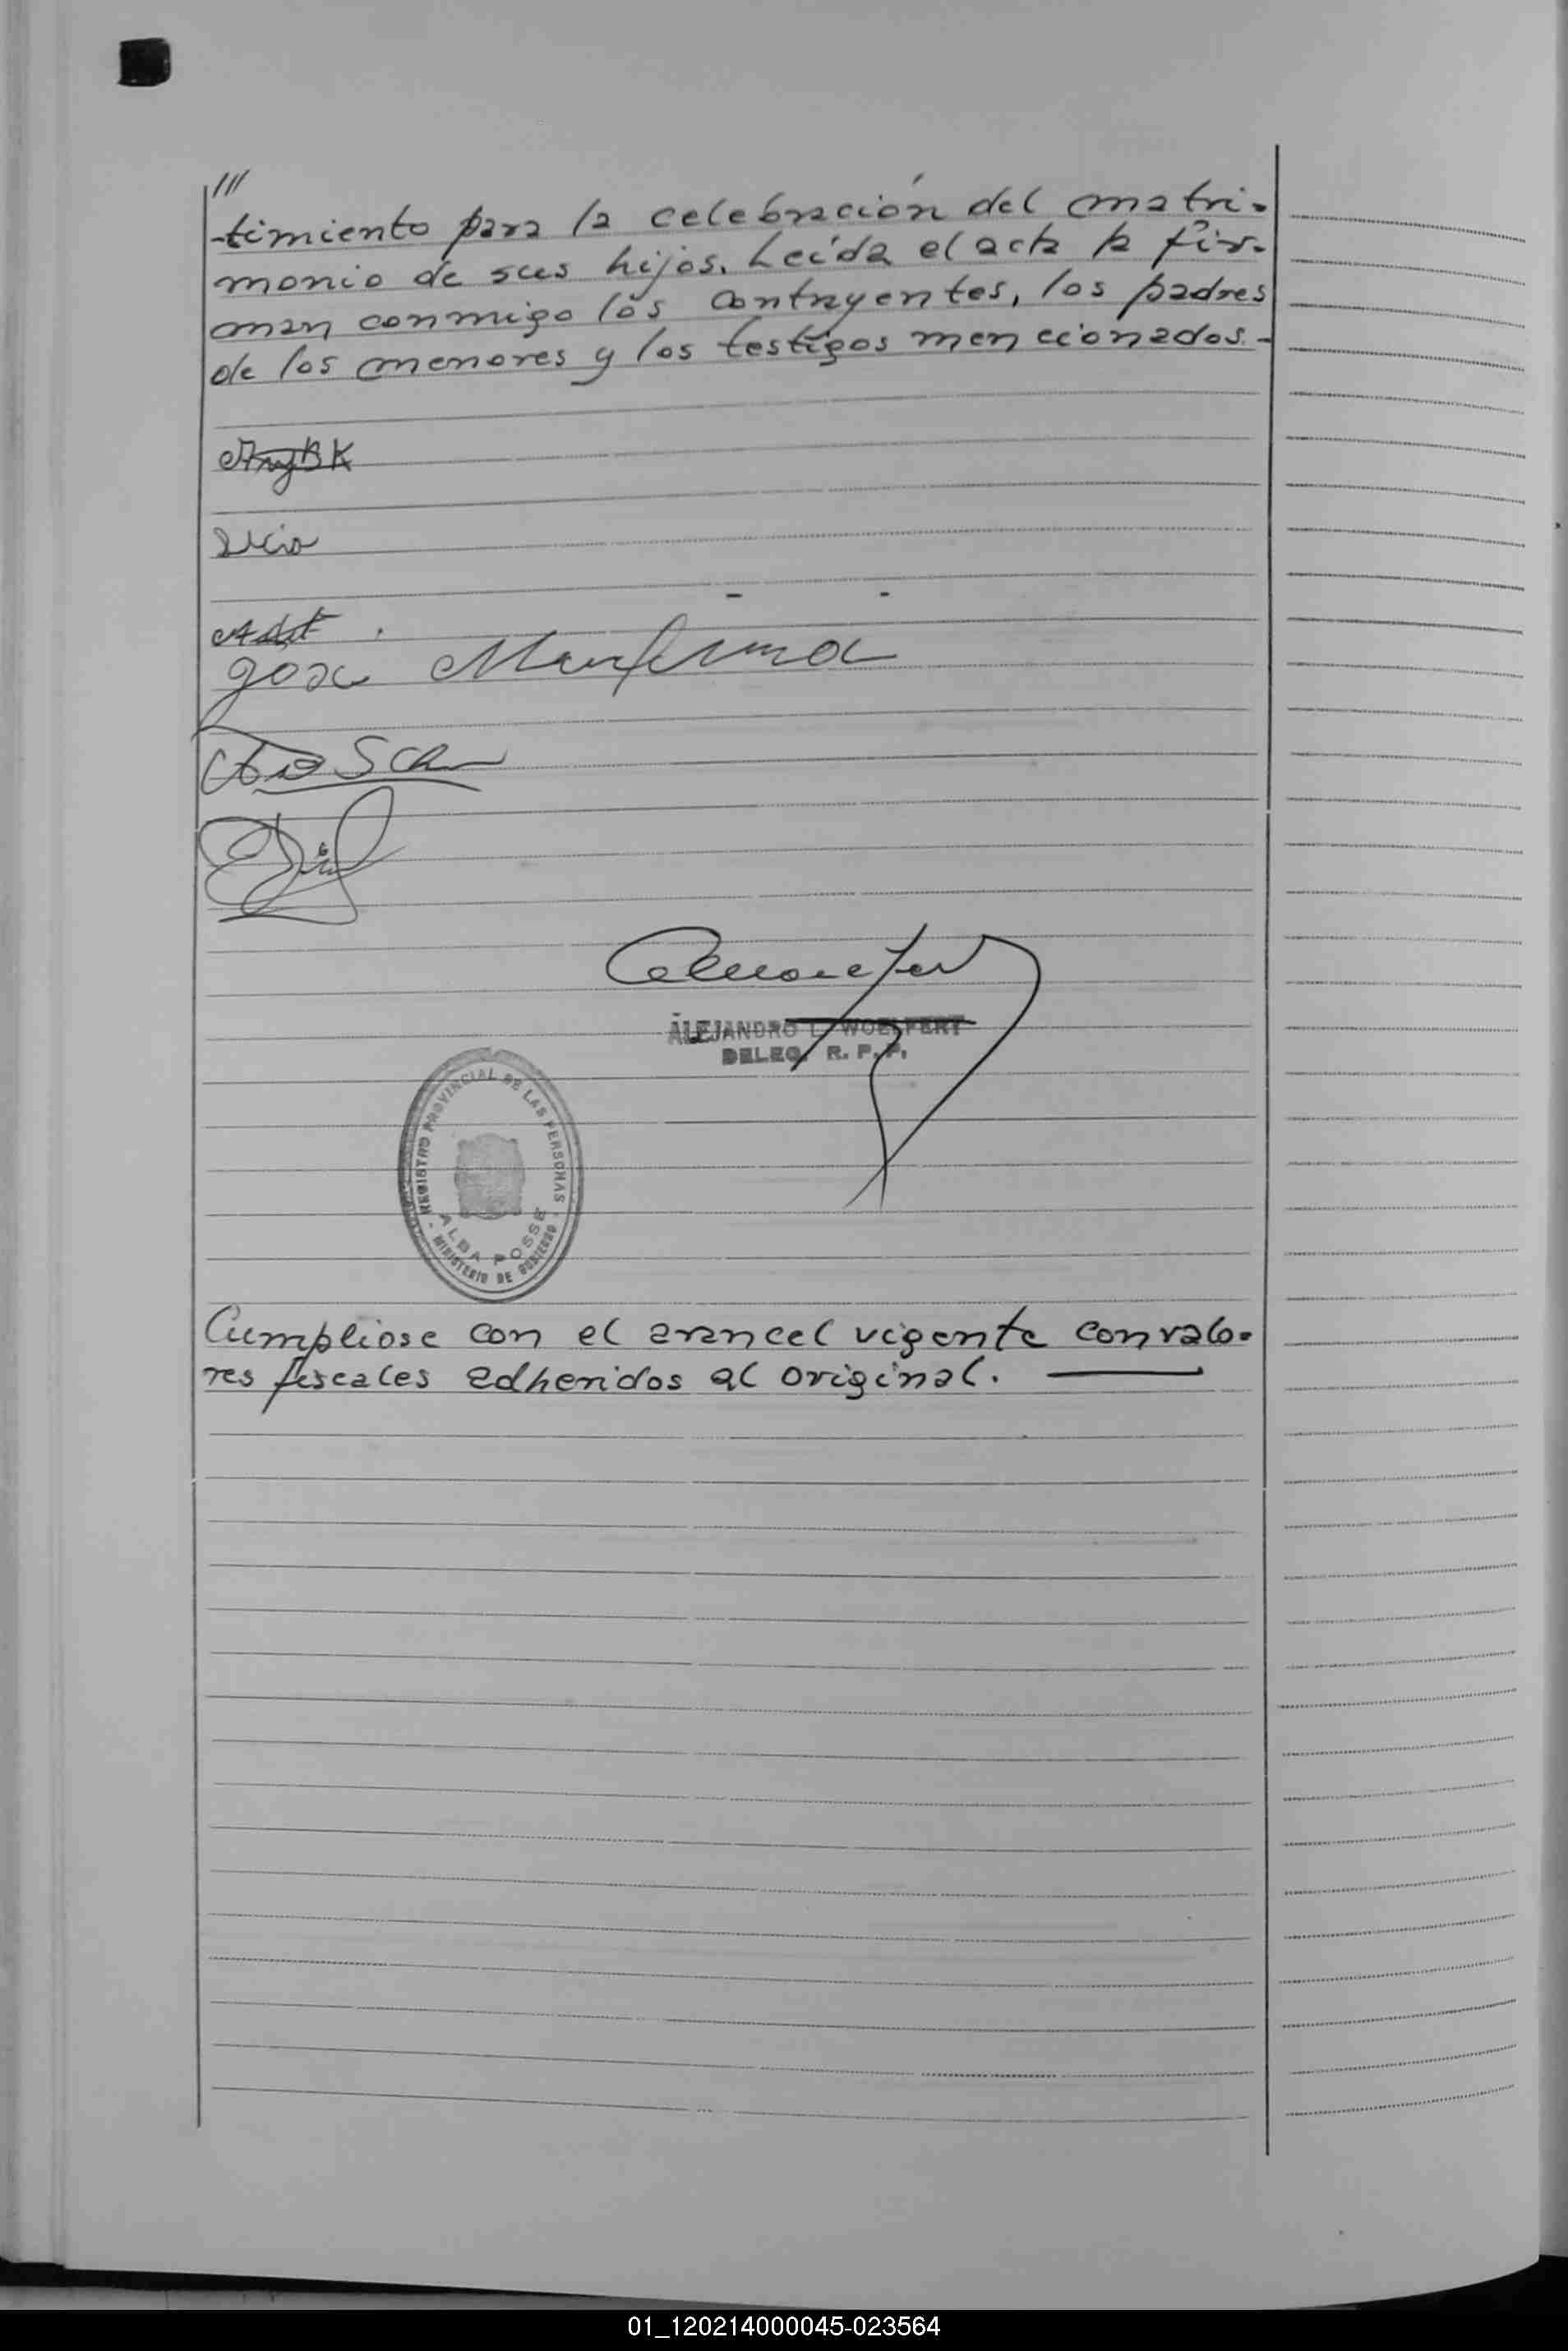 ///
-timiento para la celebración del matri-
monio de sus hijos. Leída el acta la fir-
man conmigo los contrayentes, los padres
de los menores y los testigos mencionados.-
José
ALEJANDRO L. WOELFERT
DELEG. R. P. P.
REGISTRO PROVINCIAL DE LAS PERSONAS
ALBA POSSE
MINISTERIO DE GOBIERNO
Cumpliose con el arancel vigente con valo-
res fiscales adheridos al original.
01_120214000045-023564